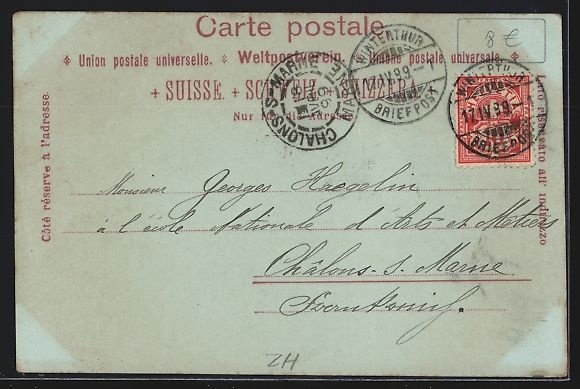 Carte postale.
8 €
Union postale universelle. Weltpostverein. Unione postale universale.
+ SUISSE. + SCHWEIZ. + SVIZZERA. +
Nur für die Adresse.
Côté réservé à l'adresse.
Lato riservato all' indirizzo
CHALONS-S-MARNE
MARNE
WINTERTHUR
17.IV.99.-1
BRIEFPOST
WINTERTHUR
17.IV.99.-1
BRIEFPOST
Monsieur Georges Haegelin
à l'école Nationale d'Arts et Métiers
Châlons-s-Marne
ZH